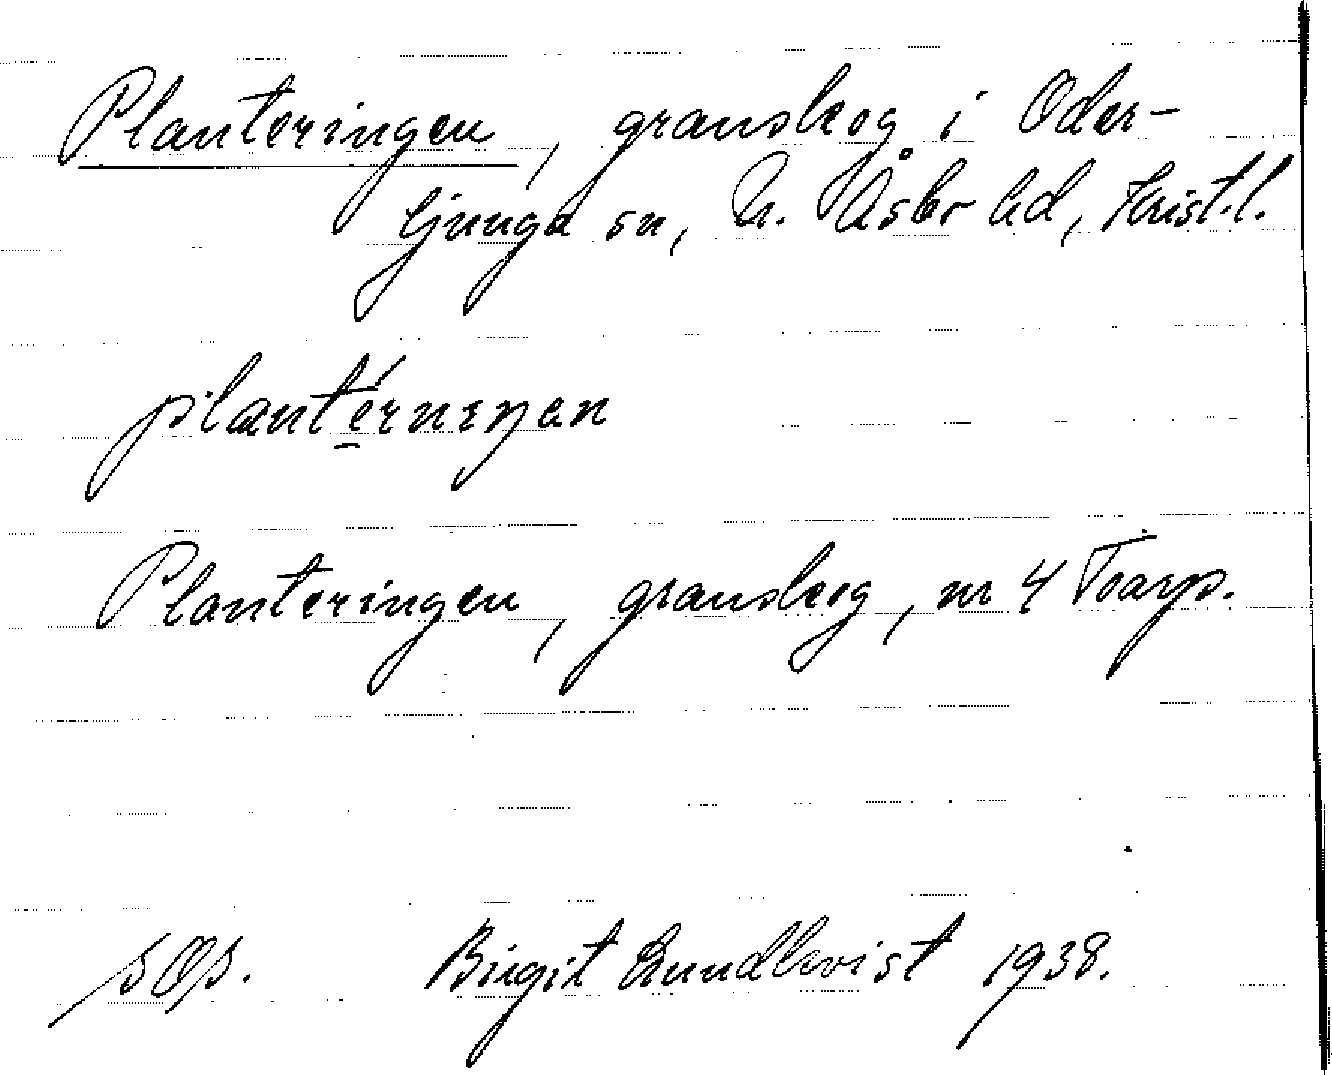 Planteringen, granskog i Oder-
ljunga sn, N. Åsbo hd, Krist.l.
plantérnıŋan
Planteringen, granskog, nr 4 Toarp.
Birgit Lundkvist 1938.